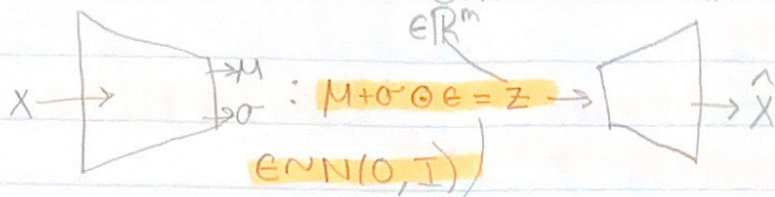 ∈ℝᵐ
X → μ
→ σ : μ+σ⊙ϵ = Z → → X̂
ϵ~N(0, I)